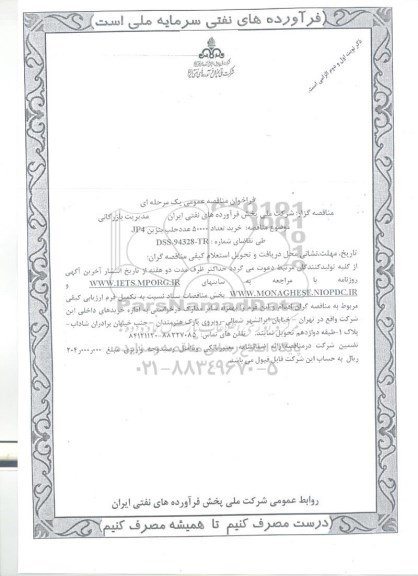 فرآورده های نفتی سرمایه ملی است
ذکر نوبت اول و دوم الزامی است.
فراخوان مناقصه عمومی یک مرحله ای
مناقصه گزار: شرکت ملی پخش فرآورده های نفتی ایران مدیریت بازرگانی
موضوع مناقصه: خرید تعداد ۵۰۰۰۰ عدد حلب بنزین JP4.
طی تقاضای شماره : DSS-94328-TR
تاریخ، مهلت، نشانی محل دریافت و تحویل استعلام کیفی مناقصه گران:
از کلیه تولیدکنندگان مرتبط دعوت می گردد حداکثر ظرف مدت دو هفته از تاریخ انتشار آخرین آگهی
روزنامه با مراجعه به سایتهای WWW.IETS.MPORG.IR و
WWW.MONAGHESE.NIOPDC.IR بخش مناقصات ستاد نسبت به تکمیل فرم ارزیابی کیفی
مربوط به مناقصه گران اقدام و خریدهای داخلی این
شرکت واقع در تهران - خیابان ایرانشهر شمالی - روبروی پارک هنرمندان - جنب خیابان برادران شاداب -
پلاک ۱ - طبقه دوازدهم تحویل نمایند. تلفن های تماس:
تضمین شرکت در مناقصه: ارائه ضمانتنامه معتبر بانکی به مبلغ
ریال به حساب این شرکت قابل قبول می باشد.
۰۲۱-۸۸۳۴۹۶۷۰-۵
روابط عمومی شرکت ملی پخش فرآورده های نفتی ایران
درست مصرف کنیم تا همیشه مصرف کنیم